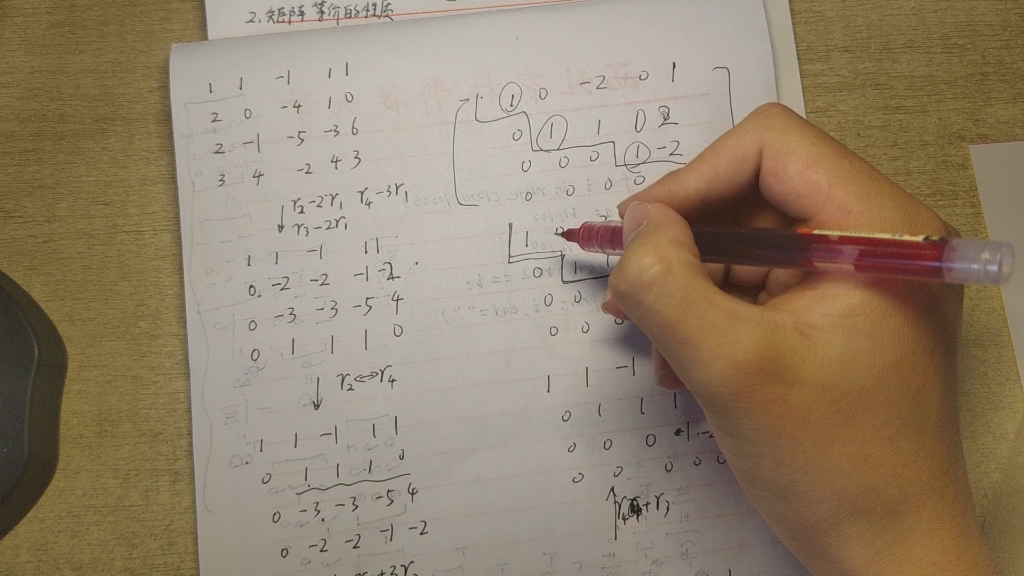 2.矩阵等价的性质
1 1 -1 1 1
2 0 -4 1 0
2 -1 -5 -3 6
3 4 -2 4 3
↓ r2-2r1 r4-3r1
r3-2r1
1 1 -1 1 1
0 -2 -2 -1 -2
0 -3 -3 -5 4
0 1 1 1 0
↓ r2↔r4
1 1 -1 1 1
0 1 1 1 0
0 -3 -3 -5 4
0 -2 -2 -1 -2
1 0 -2 0 1
0 1 1 0 2
0 0 0 1 -2
0 0 0 0
1
0 1
0 0
0 0
1 1 -1
0 1 1 1
0 0 0
0 0 0 0 0
+r3